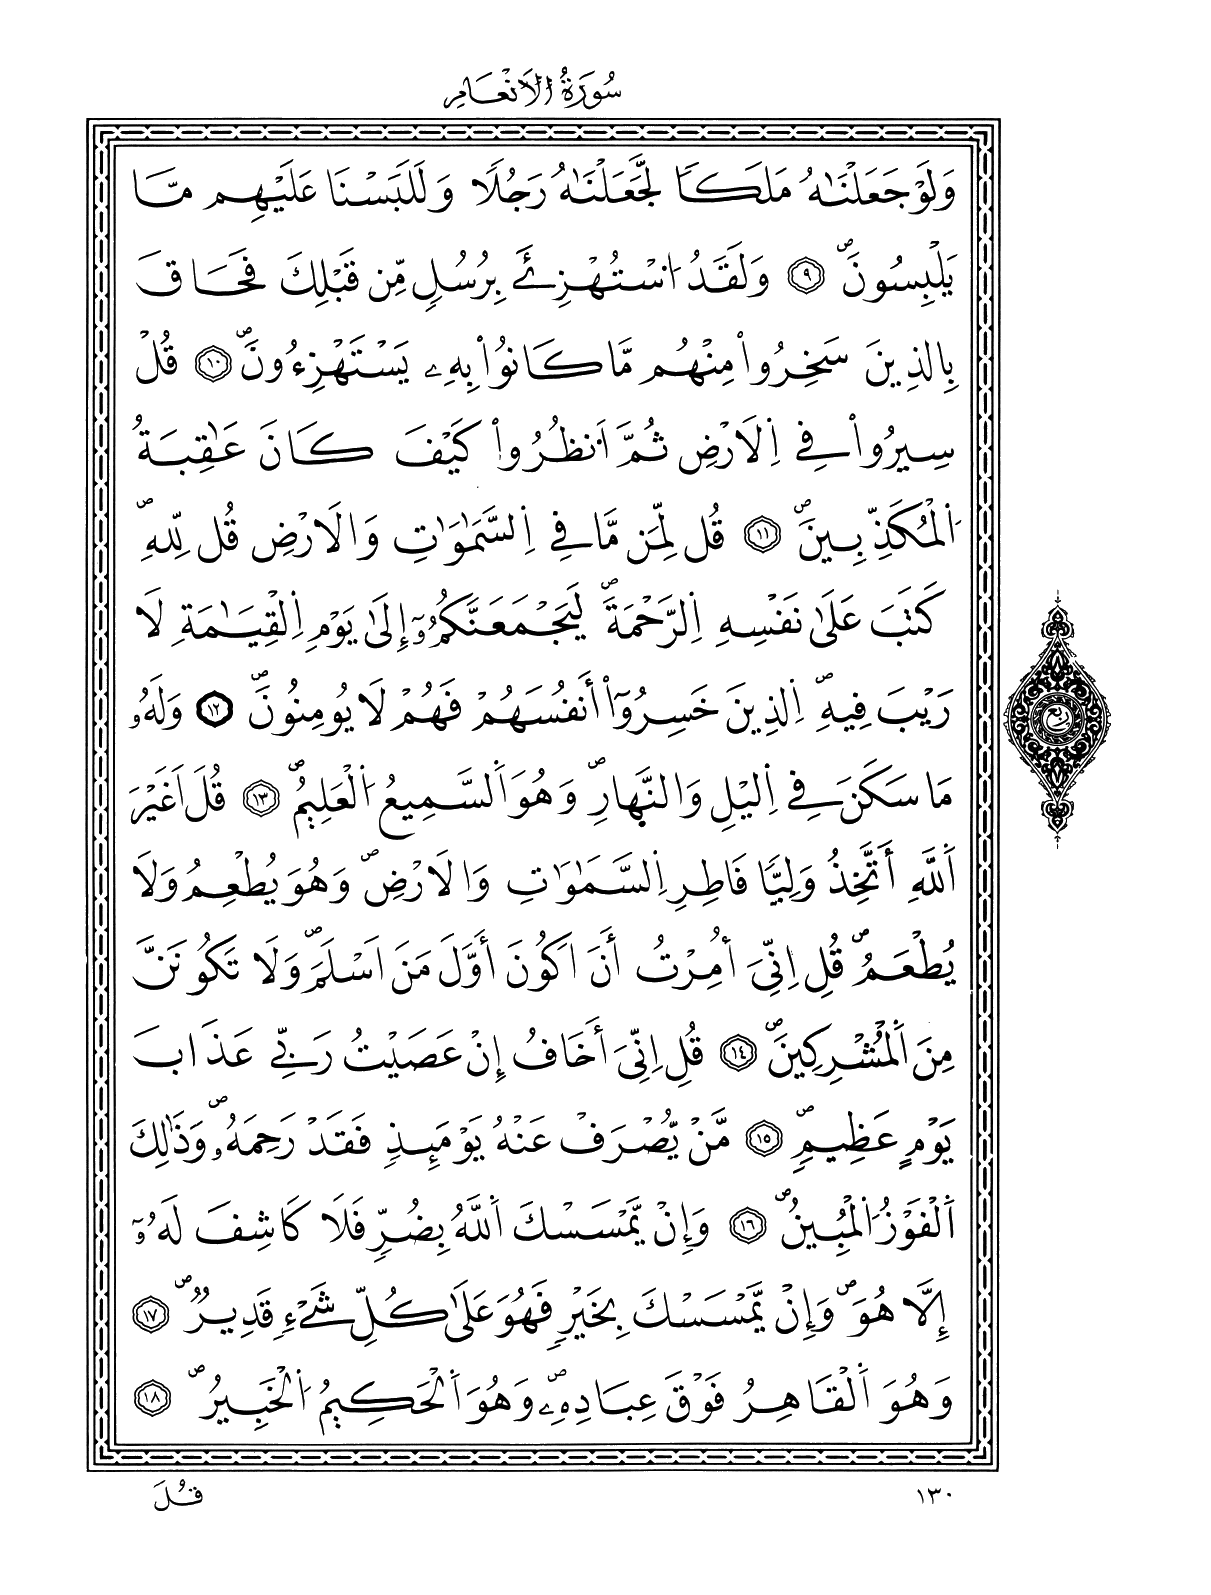 سُورَةُ الَانْعَامِ
وَلَوْ جَعَلْنَٰهُ مَلَكاٗ لَّجَعَلْنَٰهُ رَجُلًا وَلَلَبَسْنَا عَلَيْهِم مَّا
يَلْبِسُونَۖ ٩ وَلَقَدُ اُسْتُهْزِئَ بِرُسُلٍ مِّن قَبْلِكَ فَحَاقَ
بِالذِينَ سَخِرُواْ مِنْهُم مَّا كَانُواْ بِهِۦ يَسْتَهْزِءُونَۖ ١٠ قُلْ
سِيرُواْ فِے اِلَارْضِ ثُمَّ اَنظُرُواْ كَيْفَ كَانَ عَٰقِبَةُ
اُلْمُكَذِّبِينَۖ ١١ قُل لِّمَن مَّا فِے اِلسَّمَٰوَٰتِ وَالَارْضِ قُل لِّلهِۖ
كَتَبَ عَلَىٰ نَفْسِهِ اِلرَّحْمَةَۖ لَيَجْمَعَنَّكُمُۥٓ إِلَىٰ يَوْمِ اِلْقِيَٰمَةِ لَا
رَيْبَ فِيهِۖ اِلذِينَ خَسِرُوٓاْ أَنفُسَهُمْ فَهُمْ لَا يُومِنُونَۖ ١٢ وَلَهُۥ
مَا سَكَنَ فِے اِليْلِ وَالنَّهارِۖ وَهُوَ اَلسَّمِيعُ اُلْعَلِيمُۖ ١٣ قُلَ اَغَيْرَ
اَللَّهِ أَتَّخِذُ وَلِيّاٗ فَاطِرِ اِلسَّمَٰوَٰتِ وَالَارْضِۖ وَهُوَ يُطْعِمُ وَلَا
يُطْعَمُۖ قُلِ اِنِّىَ أُمِرْتُ أَنَ اَكُونَ أَوَّلَ مَنَ اَسْلَمَۖ وَلَا تَكُونَنَّ
مِنَ اَلْمُشْرِكِينَۖ ١٤ قُلِ اِنِّىَ أَخَافُ إِنْ عَصَيْتُ رَبِّے عَذَابَ
يَوْمٍ عَظِيمٍۖ ١٥ مَّنْ يُّصْرَفْ عَنْهُ يَوْمَئِذٖ فَقَدْ رَحِمَهُۥۖ وَذَٰلِكَ
اَلْفَوْزُ اُلْمُبِينُۖ ١٦ وَإِنْ يَّمْسَسْكَ اَللَّهُ بِضُرّٖ فَلَا كَاشِفَ لَهُۥٓ
إِلَّا هُوَۖ وَإِنْ يَّمْسَسْكَ بِخَيْرٖ فَهُوَ عَلَىٰ كُلِّ شَےْءٖ قَدِيرٞۖ ١٧
وَهُوَ اَلْقَاهِرُ فَوْقَ عِبَادِهِۦۖ وَهُوَ اَلْحَكِيمُ اُلْخَبِيرُۖ ١٨
ربع
١٣٠
قُلَ